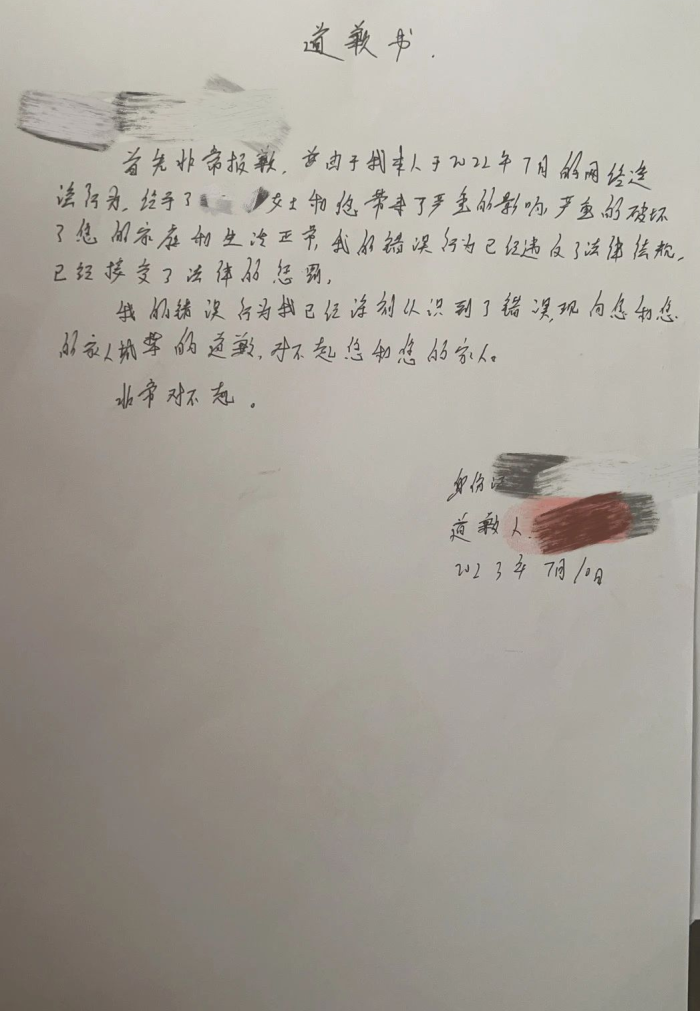 道歉书.
首先非常报歉,由于我本人于2022年7月的网络违
法行为,给予了 女士和您带来了严重的影响,严重的破坏
了您的家庭和生活正常,我的错误行为已经违反了法律法规,
已经接受了法律的惩罚,
我的错误行为我已经深刻认识到了错误,现向您和您
的家人挚的道歉,对不起您和您的家人。
非常对不起。
身份证
道歉人.
2023年7月10日